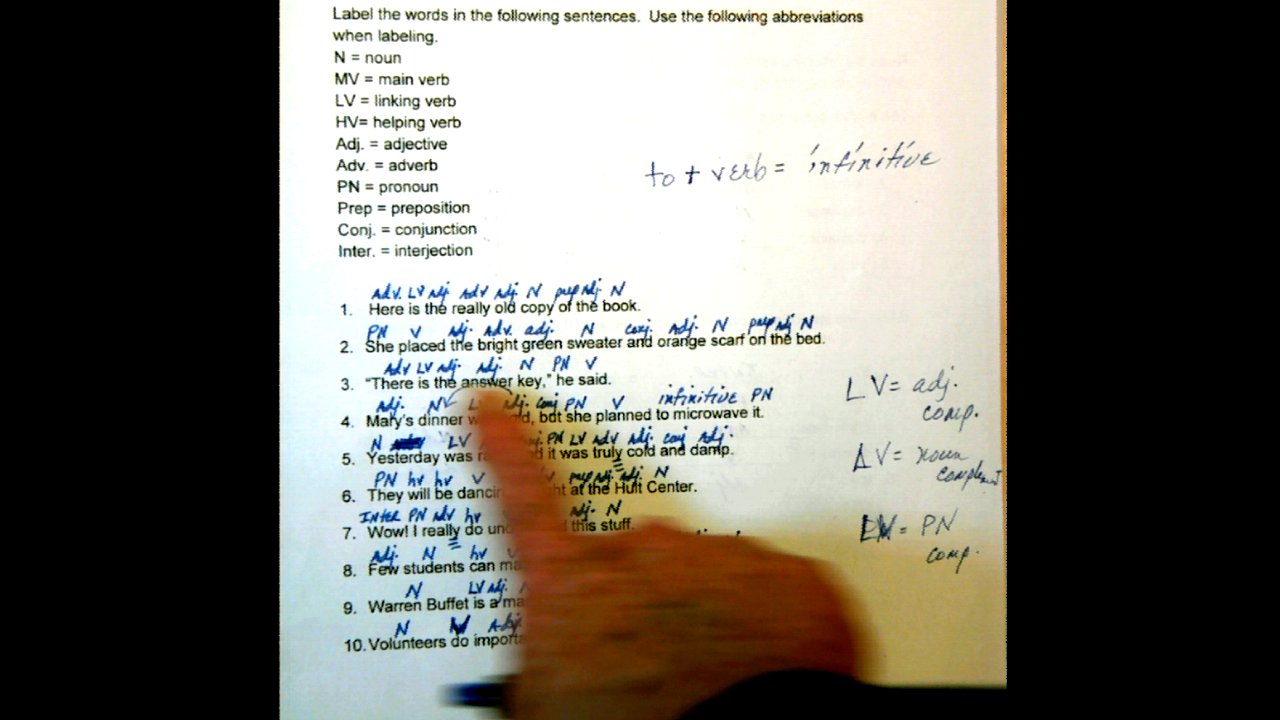 Label the words in the following sentences. Use the following abbreviations
when labeling.
N = noun
MV = main verb
LV = linking verb
HV= helping verb
Adj. = adjective
Adv. = adverb
to + verb = infinitive
PN = pronoun
Prep = preposition
Conj. = conjunction
Inter. = interjection
Adv. LV Adj. Adv Adj. N prep Adj. N
1. Here is the really old copy of the book.
PN V Adj. Adv. adj. N conj. Adj. N prep Adj N
2. She placed the bright green sweater and orange scarf on the bed.
Adv LV Adj. Adj. N PN V
3. "There is the answer key," he said.
LV= adj.
comp.
Adj. N Adj. Conj PN V infinitive PN
4. Mary's dinner but she planned to microwave it.
N LV PN LV Adv Adj. conj Adj.
5. Yesterday was it was truly cold and damp.
LV= noun
PN hv hv V prep Adj. adj. N
6. They will be at the Hult Center.
Inter PN Adv hv adj. N
7. Wow! I really do this stuff.
= PN
comp.
Adj. N hv
8. Few students can
N LV Adj.
9. Warren Buffet is a
N V
10. Volunteers do